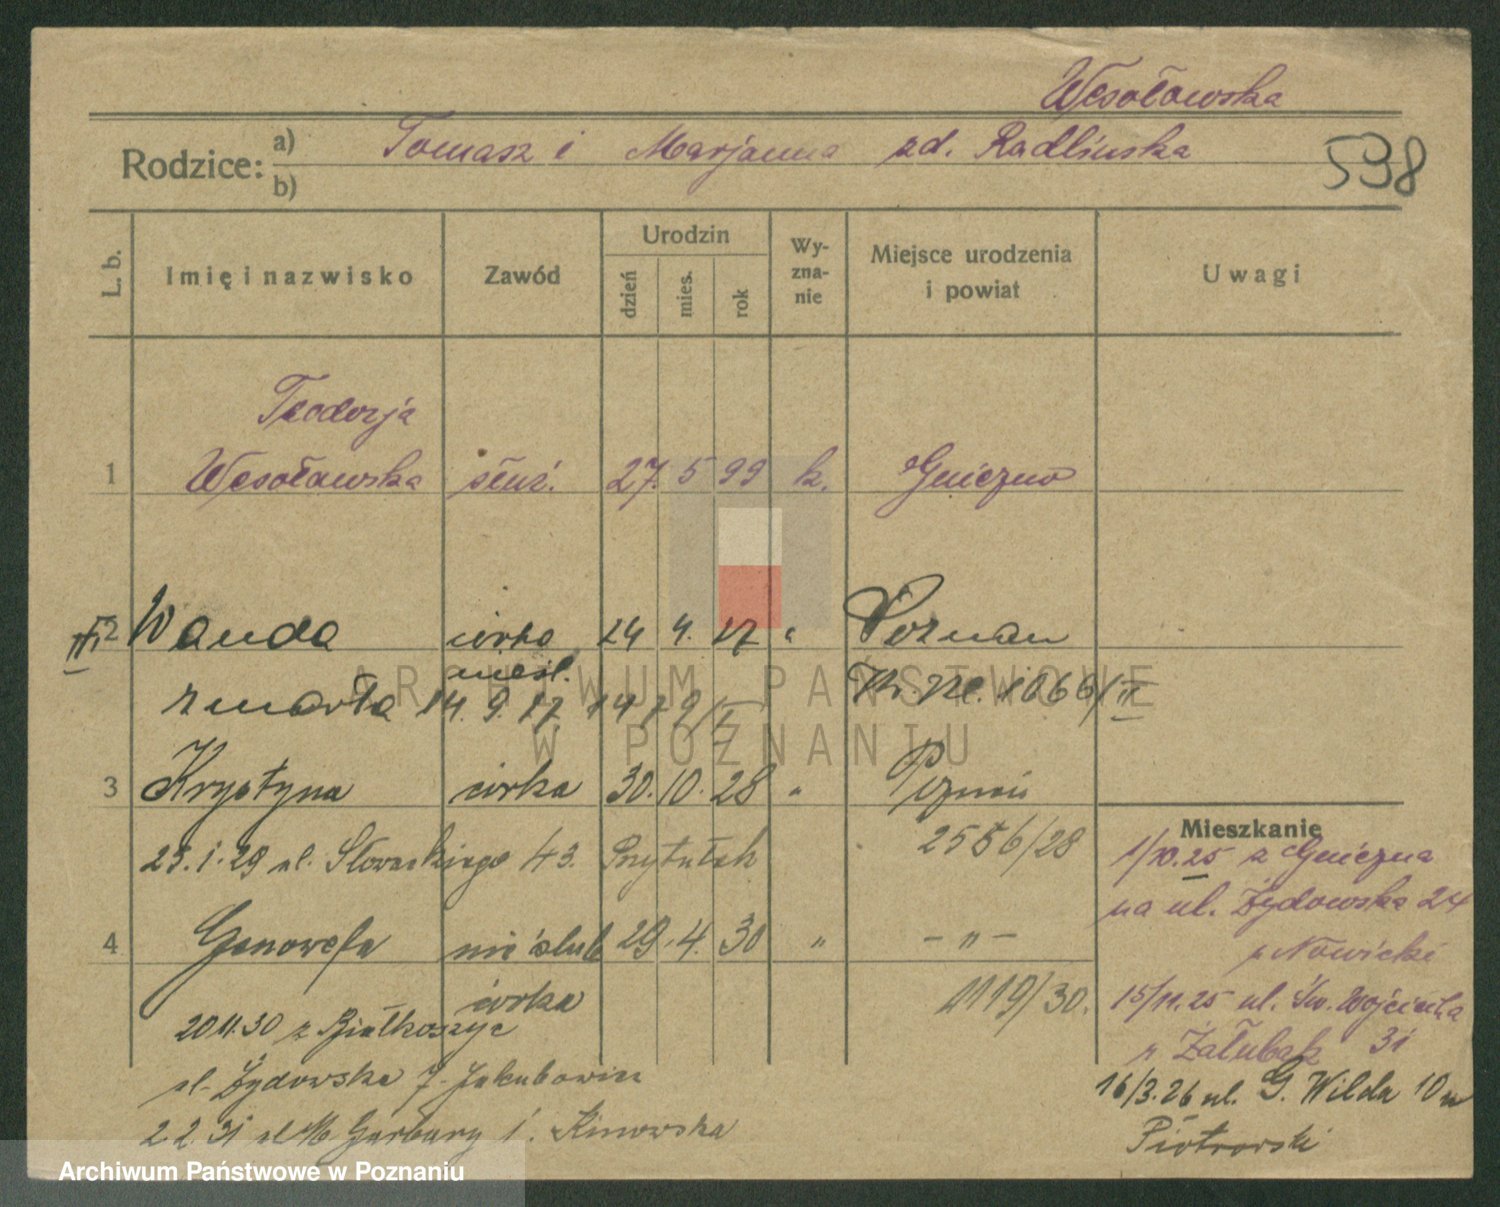 Wesołowska
Rodzice: a) Tomasz i Marjanna zd. Radlińska
b)
598
L. b.
Imię i nazwisko
Zawód
Urodzin
dzień
mies.
rok
Wy-
zna-
nie
Miejsce urodzenia
i powiat
Uwagi
Teodozja
1 Wesołowska służ. 27. 5 99 k. Gniezno
2 Wanda córka 24 4. 27 " Poznań
nieśl.
zmarła 14. 9. 27. 1066/II
3 Krystyna córka 30. 10. 28 " Poznań
2556/28
23.1.29 ul. Słowackiego 43. Przytułek
4 Genowefa nieślub 29. 4. 30 " - " -
córka 1119/30.
20.11.30 z Białkoszyc
ul. Żydowska 7. Jakubowicz
2 2. 31 ul. M. Garbary 1. Kinowska
Mieszkanie
1/10.25 z Gniezna
na ul. Żydowska 24
p Nowicki
15/11.25 ul. Św. Wojciecha
p Załubak 31
16/3.26 ul. G. Wilda 10
Piotrowski
ARCHIWUM PAŃSTWOWE
W POZNANIU
Archiwum Państwowe w Poznaniu